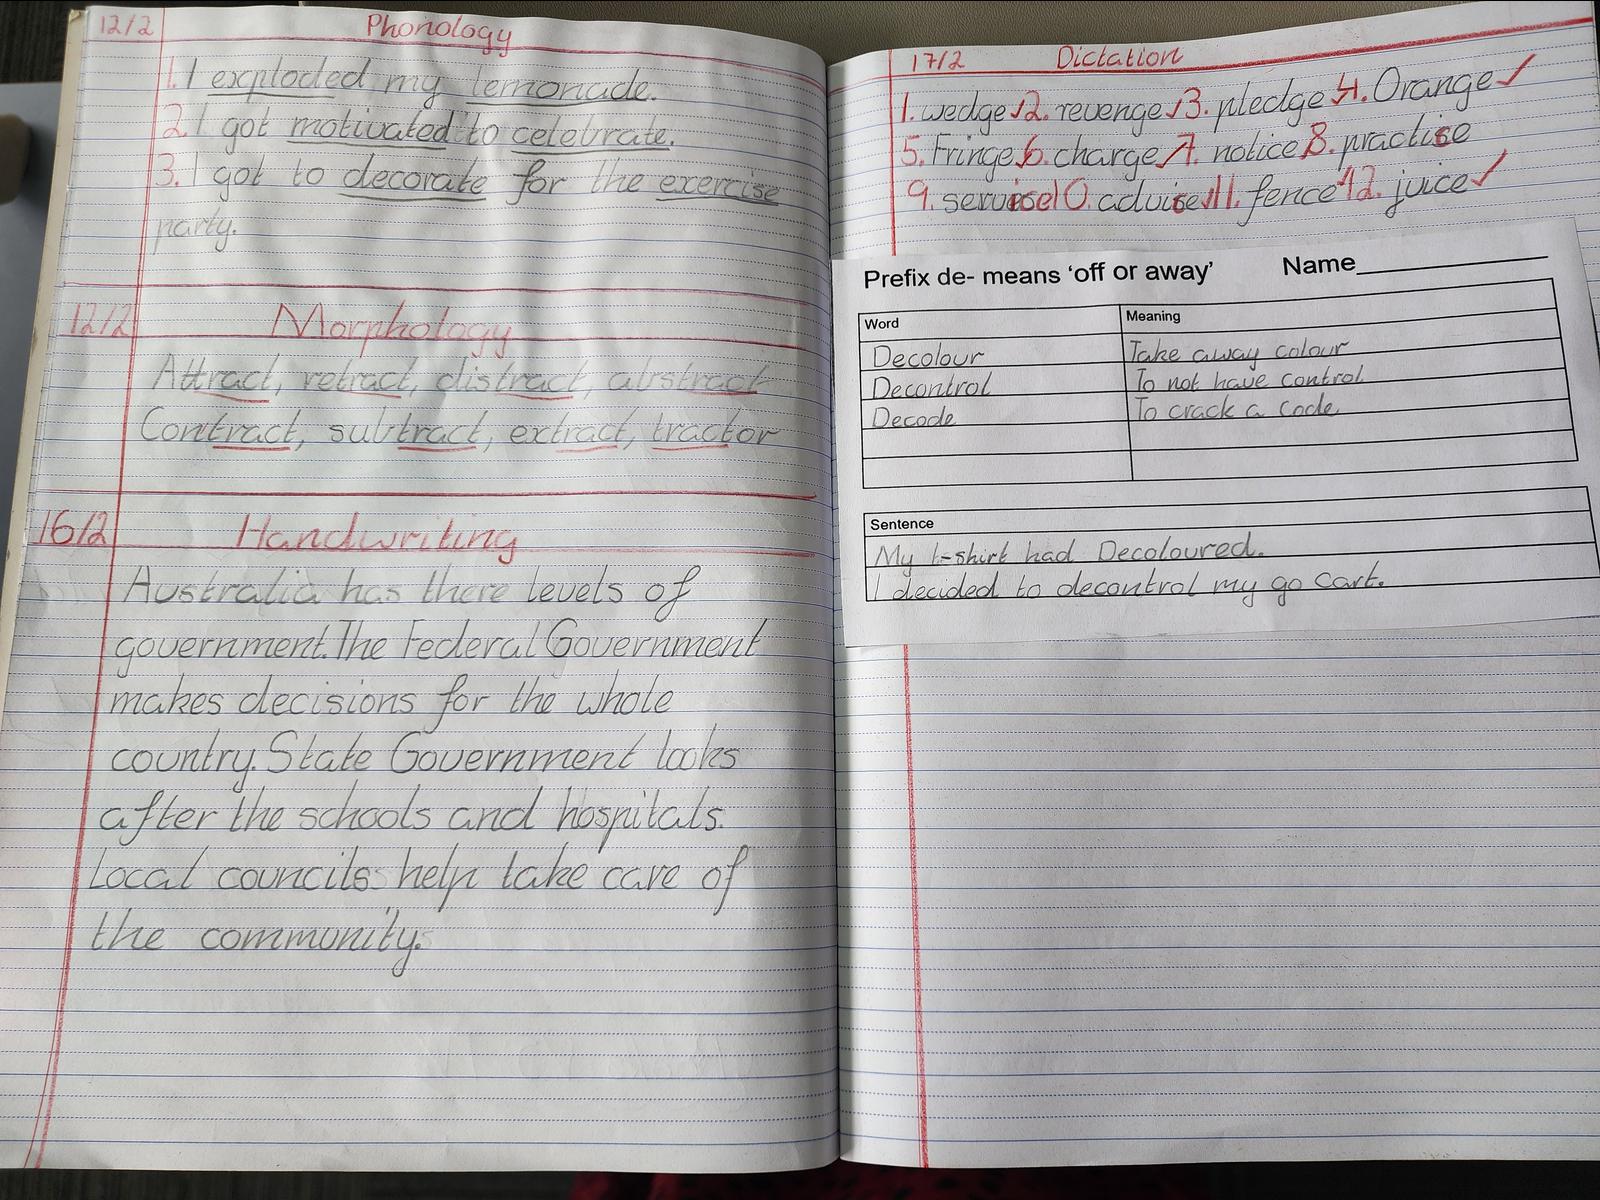 12/2 Phonology
1. I exploded my lemonade.
2. I got motivated to celebrate.
3. I got to decorate for the exercise
party.
12/2 Morphology
Attract, retract, distract, abstract
Contract, subtract, extract, tractor
16/2 Handwriting
Australia has there levels of
government. The Federal Government
makes decisions for the whole
country. State Government looks
after the schools and hospitals.
Local councils help take care of
the community.
17/2 Dictation
1. wedge ✓ 2. revenge ✓ 3. pledge ✓ 4. Orange ✓
5. Fringe 6. charge ✓ 7. notice 8. practice
9. service 10. advice ✓ 11. fence 12. juice ✓
Prefix de- means ‘off or away’ Name
Word Meaning
Decolour Take away colour
Decontrol To not have control
Decode To crack a code
Sentence
My t-shirt had Decoloured.
I decided to decontrol my go cart.